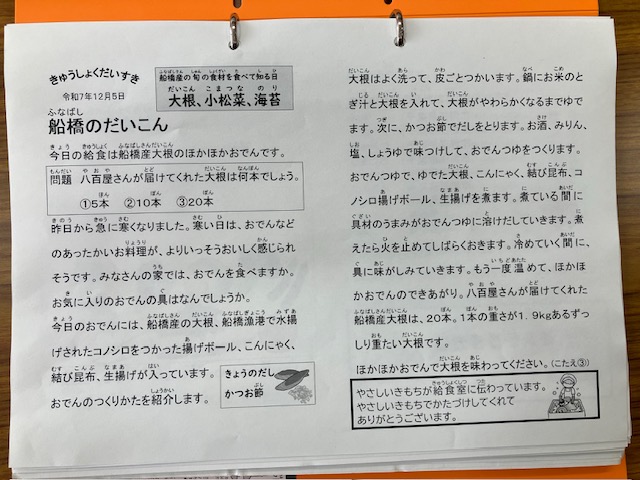 きゅうしょくだいすき
令和7年12月5日
船橋産の旬の食材を食べて知る日
大根、小松菜、海苔
船橋のだいこん
今日の給食は船橋産大根のほかほかおでんです。
問題 八百屋さんが届けてくれた大根は何本でしょう。
①5本 ②10本 ③20本
昨日から急に寒くなりました。寒い日は、おでんなど
のあったかいお料理が、よりいっそうおいしく感じられ
そうです。みなさんの家では、おでんを食べますか。
お気に入りのおでんの具はなんでしょうか。
今日のおでんには、船橋産の大根、船橋漁港で水揚
げされたコノシロをつかった揚げボール、こんにゃく、
結び昆布、生揚げが入っています。
おでんのつくりかたを紹介します。
きょうのだし
かつお節
大根はよく洗って、皮ごとつかいます。鍋にお米のと
ぎ汁と大根を入れて、大根がやわらかくなるまでゆで
ます。次に、かつお節でだしをとります。お酒、みりん、
塩、しょうゆで味つけして、おでんつゆをつくります。
おでんつゆで、ゆでた大根、こんにゃく、結び昆布、コ
ノシロ揚げボール、生揚げを煮ます。煮ている間に
具材のうまみがおでんつゆに溶けだしていきます。煮
えたら火を止めてしばらくおきます。冷めていく間に、
具に味がしみていきます。もう一度温めて、ほかほ
かおでんのできあがり。八百屋さんが届けてくれた
船橋産大根は、20本。1本の重さが1.9kgあるずっ
しり重たい大根です。
ほかほかおでんで大根を味わってください。(こたえ③)
やさしいきもちが給食室に伝わっています。
やさしいきもちでかたづけしてくれて
ありがとうございます。